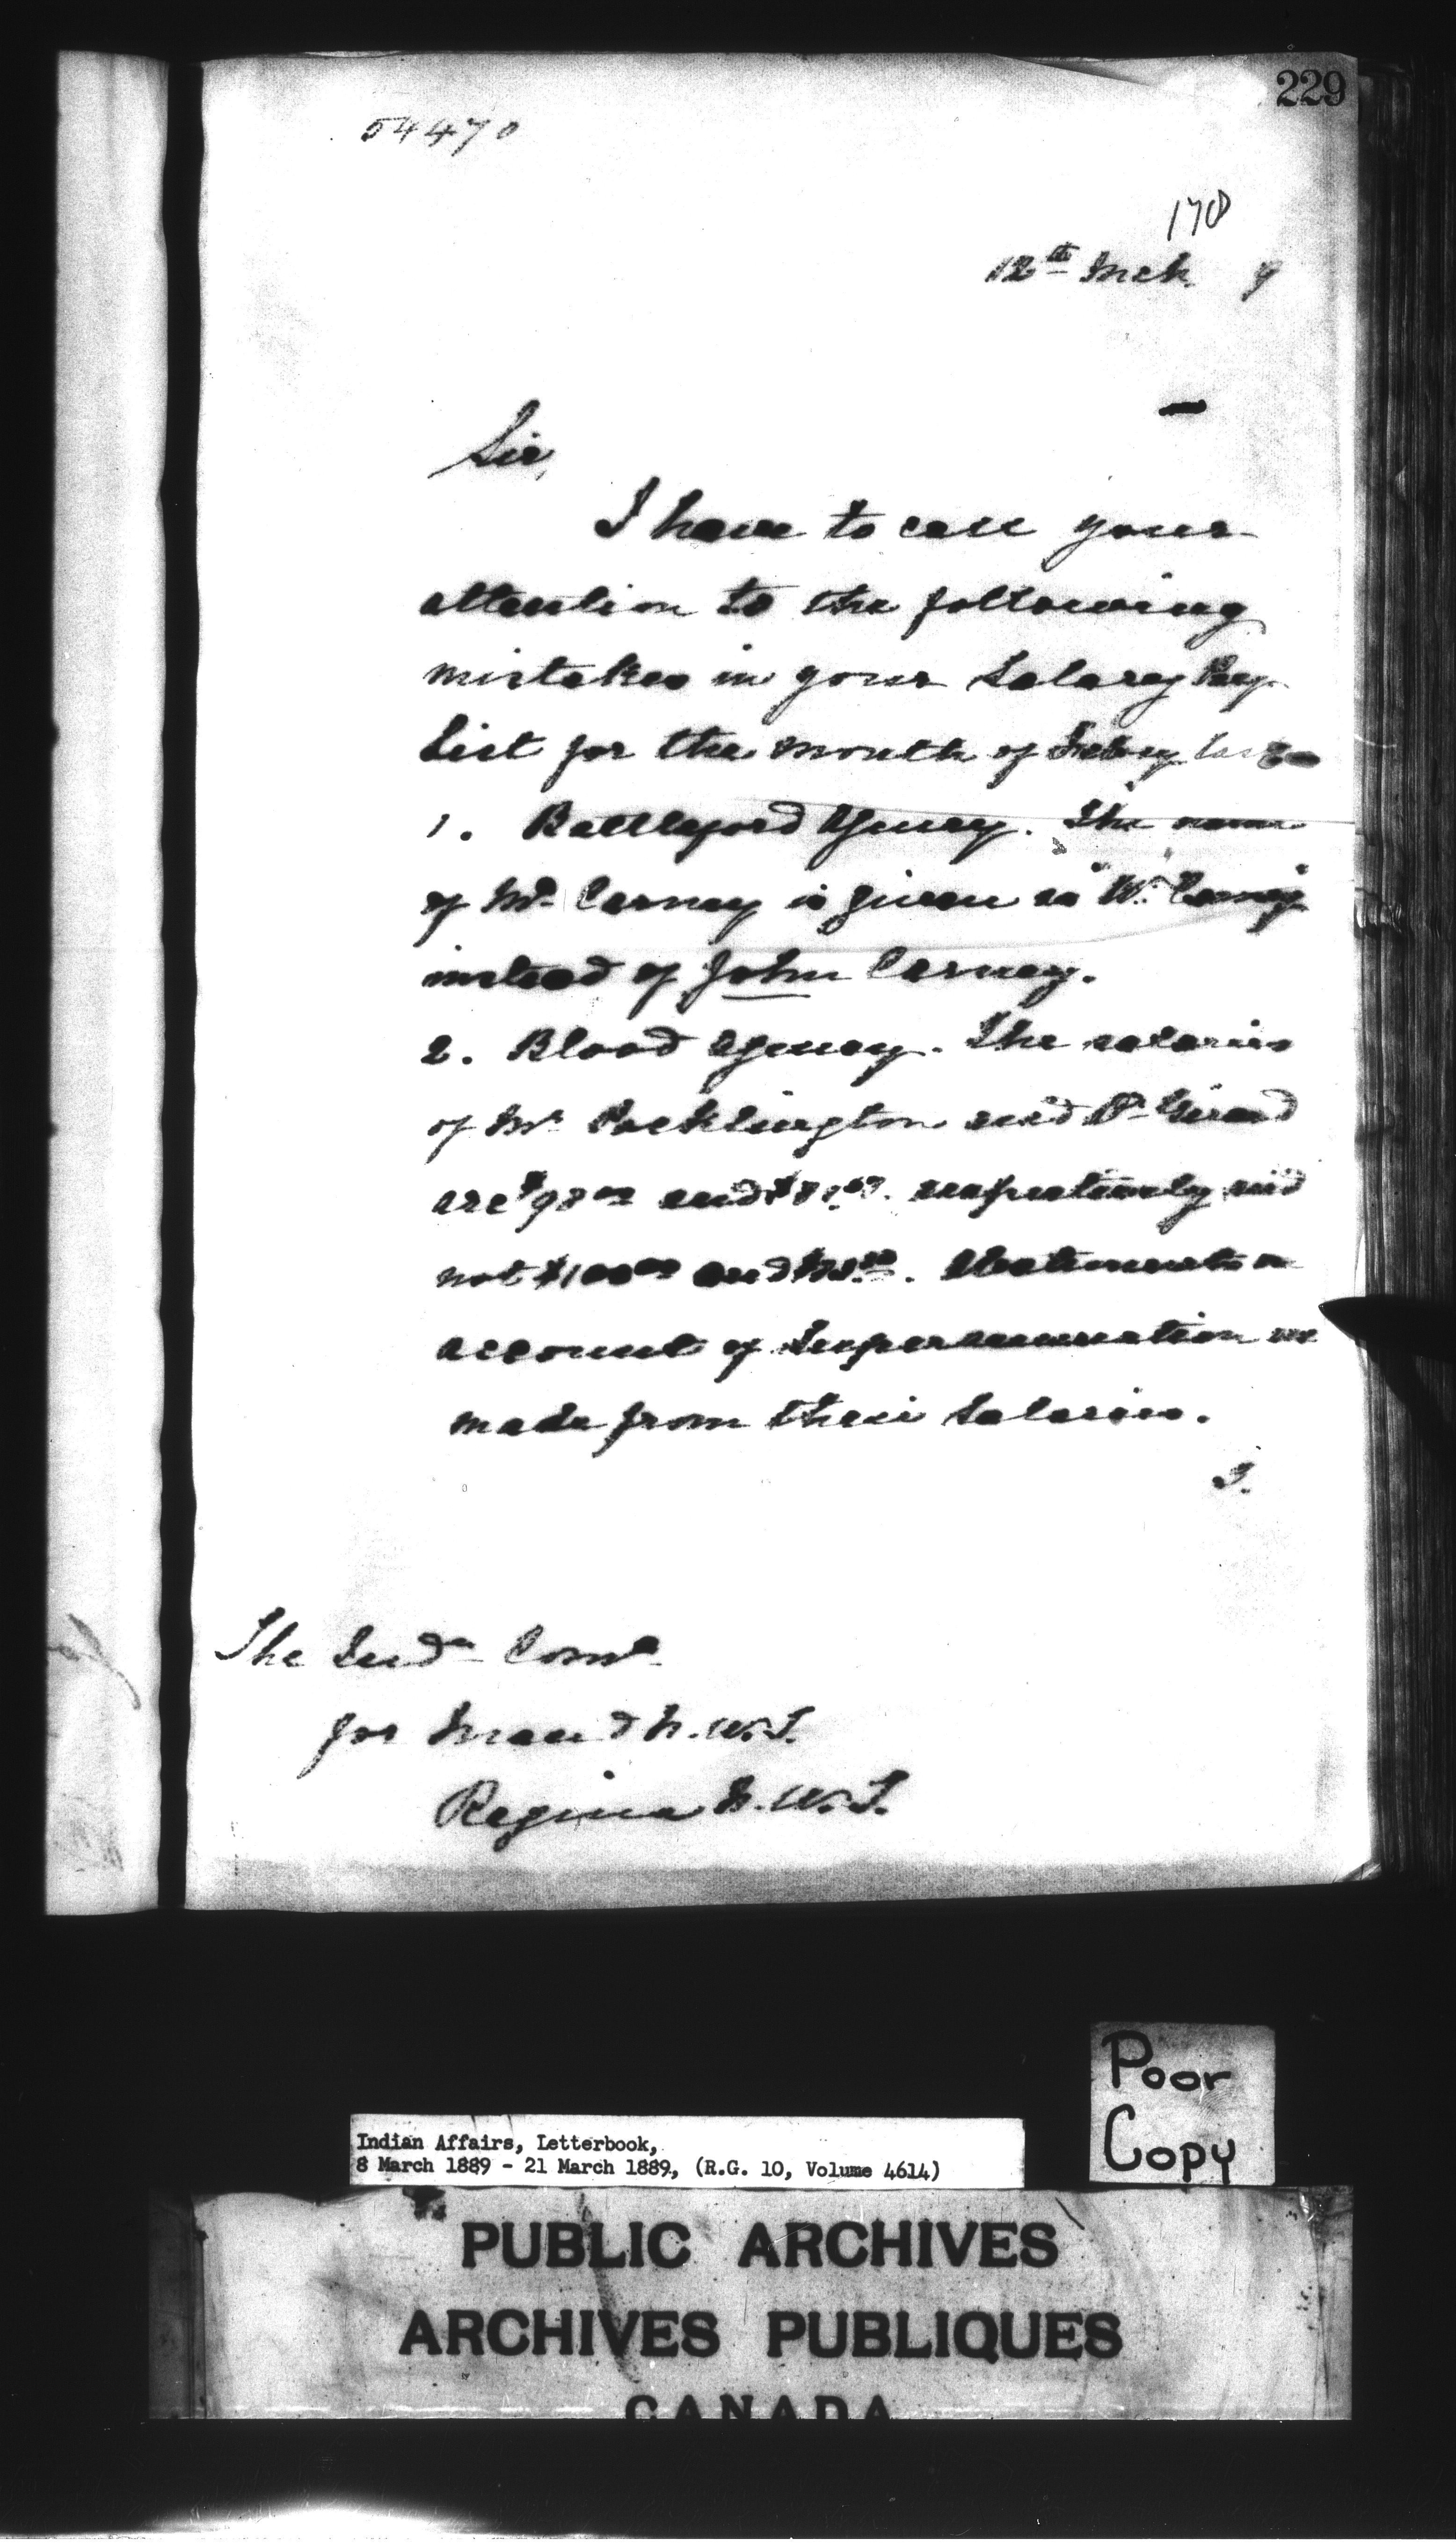 229
54470
170
12th Mch. 9
Sir,
I have to call your
attention to the following
mistakes in your Salary Pay
List for the month of Feby last
1. Battleford Agency. The name
of Mr. Carney is given as "W. Carney"
instead of John Carney.
2. Blood Agency. The salaries
of Mr. Pocklington and Dr. Girard
are $98 00 and respectively and
not $100 00 and Abatements on
account of Superannuation are
made from their salaries.
3.
The Indn Comr
for Man & N.W.T.
Regina N.W.T.
Poor
Copy
Indian Affairs, Letterbook,
8 March 1889 - 21 March 1889, (R.G. 10, Volume 4614)
PUBLIC ARCHIVES
ARCHIVES PUBLIQUES
CANADA